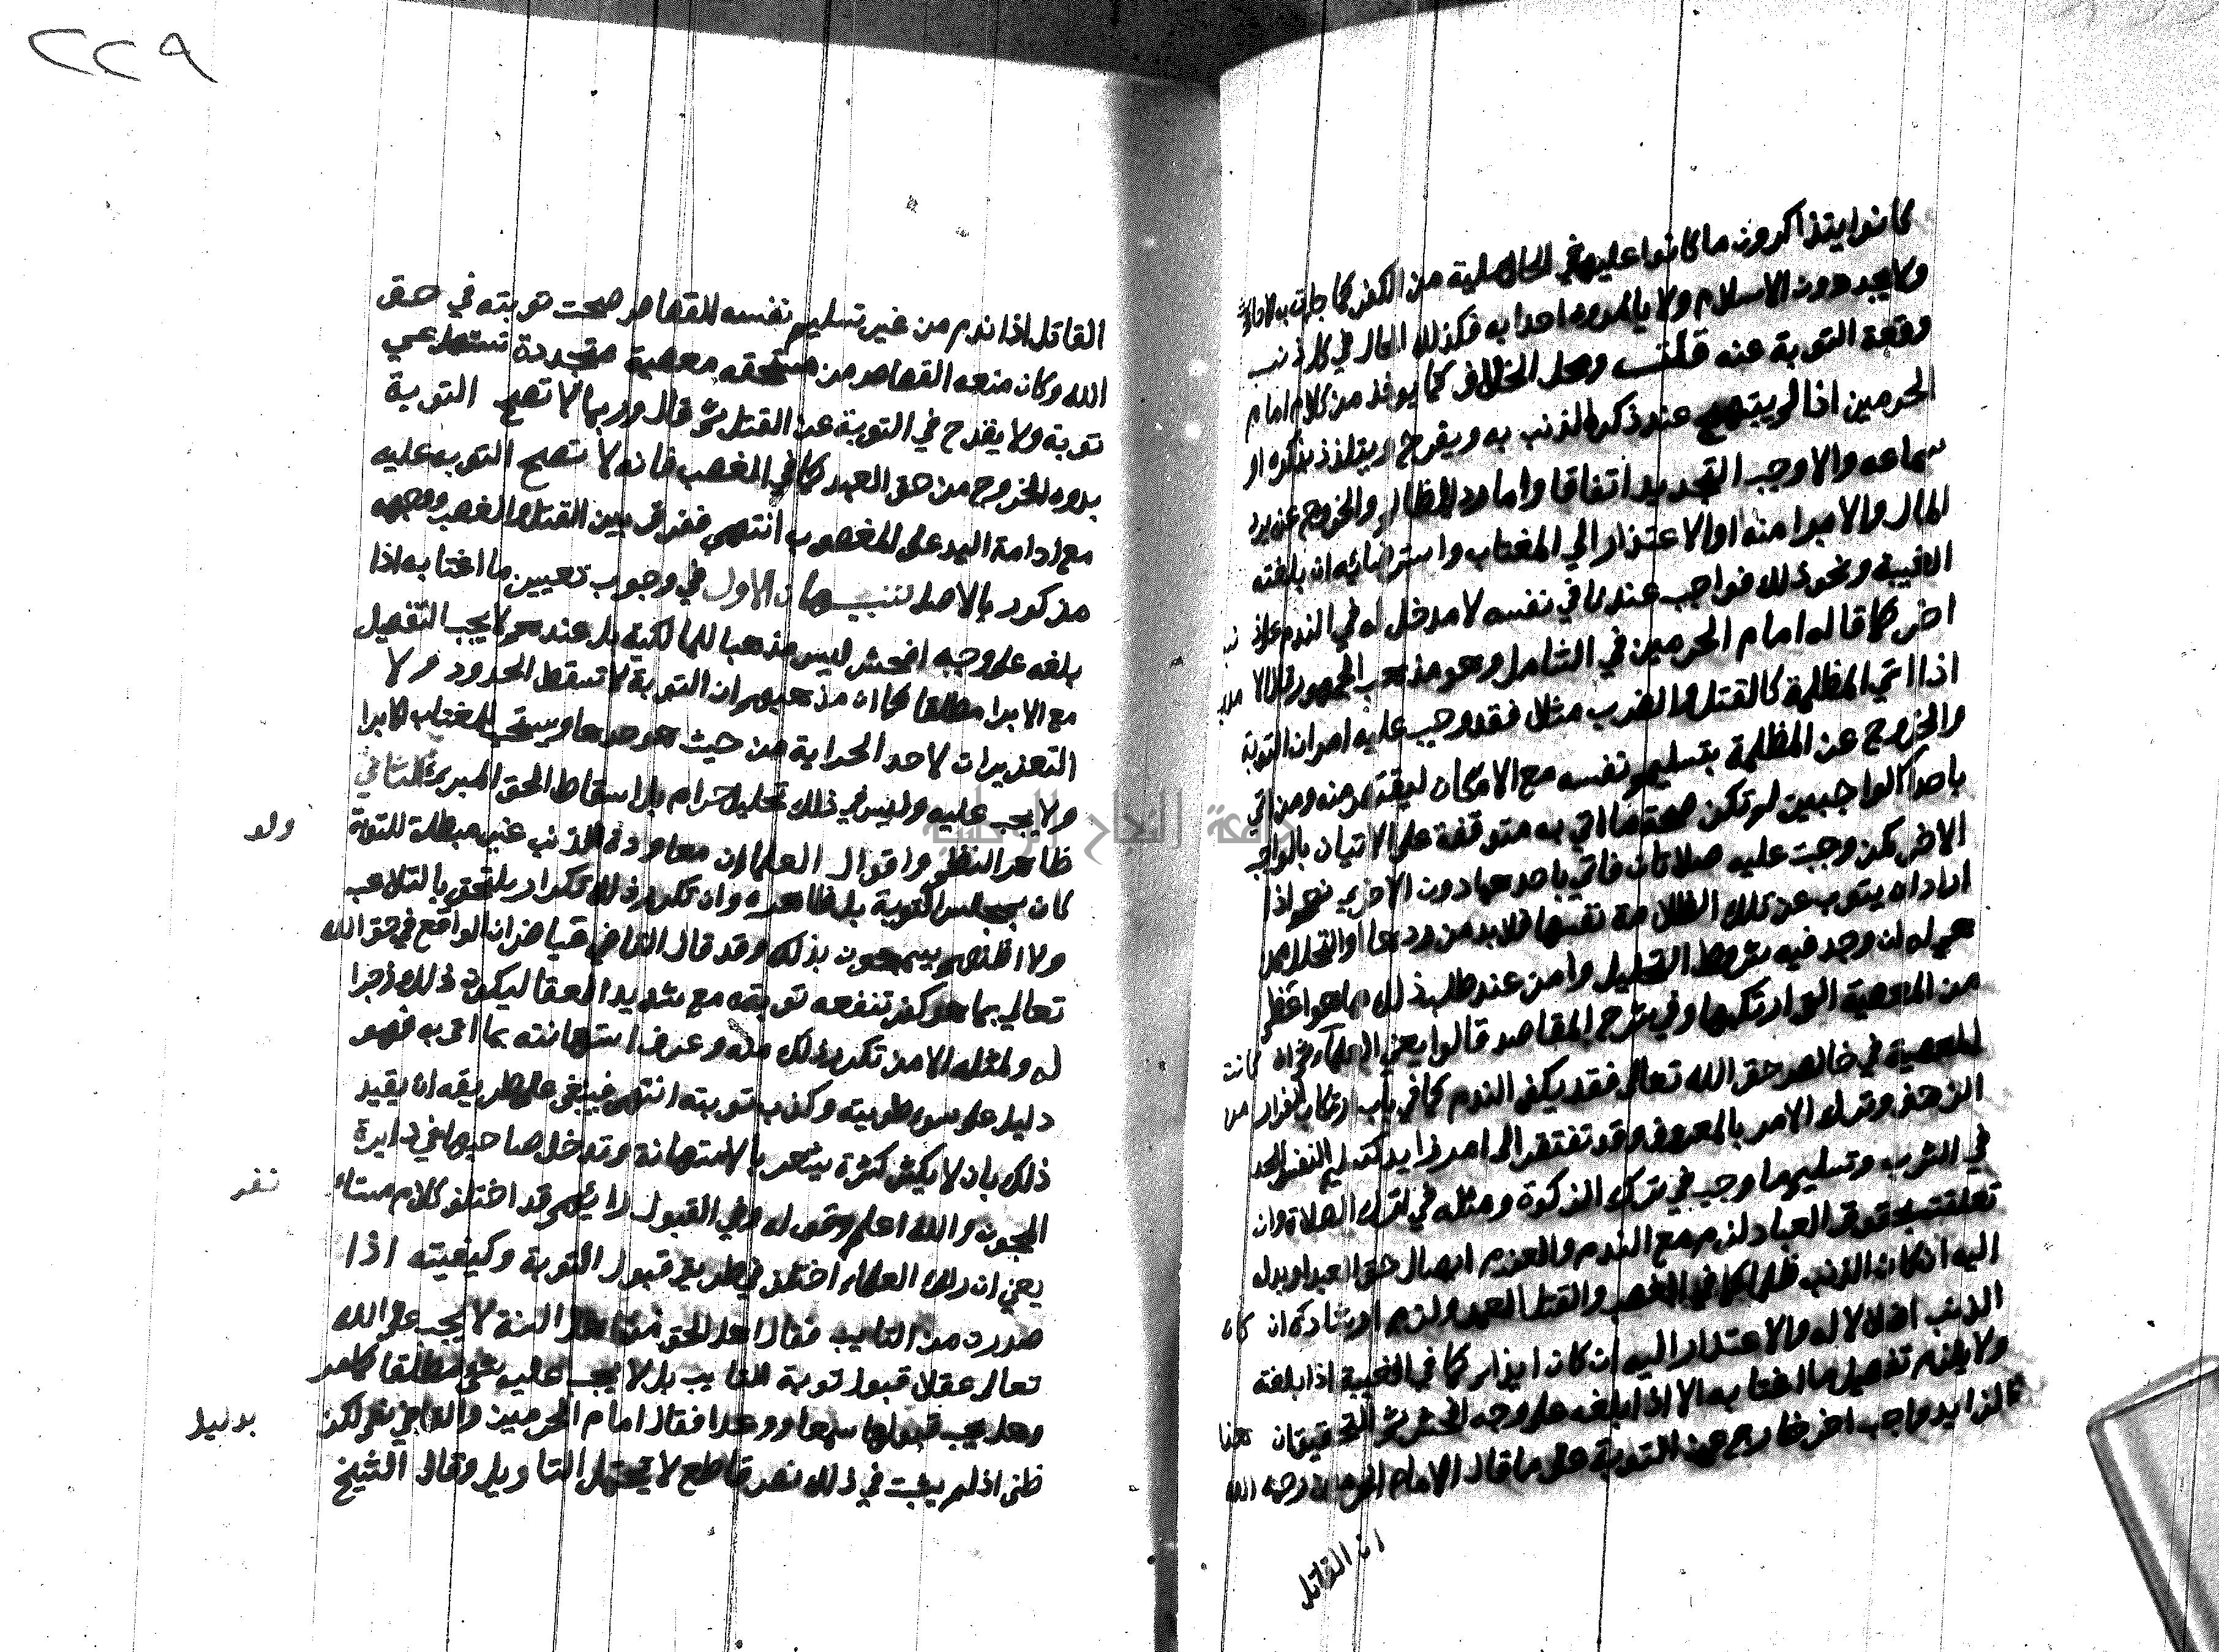 كانوا يتذاكرون ما كانوا عليه في الجاهلية من الكفر كما جات به الاحاديث
ولا يجددون الاسلام ولا يامرون احدا به فكذلك الحال في كل ذنب
وقعة التوبة عنه قلت ومحل الخلاف كما يوخذ من كلام امام
الحرمين اذا لم يبتهج عند ذكره الذنب به ويفرح ويتلذذ بذكره او
سماعه والا وجب التجديد اتفاقا واما رد المظالم والخروج عنها برد
المال والابرا منه او الاعتذار الي المغتاب واسترضائه ان بلغته
الغيبة ونحو ذلك فواجب عندنا في نفسه لا مدخل له في الندم علي ذنب
اخر كما قاله امام الحرمين في الشامل وهو مذهب الجمهور قال الامدي
اذا اتي المظلمة كالقتل والضرب مثلا فقد وجب عليه امران التوبة
والخروج عن المظلمة بتسليم نفسه مع الامكان ليقتص منه ومن اتي
باحد الواجبين لم تكن صحة ما اتي به متوقفة علي الاتيان بالواجب
الاخر كمن وجبت عليه صلاتان فاتي باحدهما دون الاخري نعم اذا
اراد ان يتوب عن تلك الظلامة نفسها فلابد من ردها او التحلل من
هي له ان وجد فيه شروط التحليل وامن عند طلب ذلك مما هو اعظم
من المعصية التي ارتكبها وفي شرح المقاصد قالوا يعني العلماء ثم ان كانت
المعصية في خالص حق الله تعالي فقد يكفي الندم كما في باب ارتكاب الفرار من
الزحف وترك الامر بالمعروف وقد تفتقر الي امر زايد كتسليم النفس للحد
في الشرب وتسليم ما وجب في ترك الزكوة ومثله في ترك الصلاة وان
تعلقت بحقوق العباد لزم مع الندم والعزم ايصال حق العبد او بدله
اليه ان كان الذنب ظلما كما في الغصب والقتل العمد ولزم ارشاده ان كان
الذنب اضلالا له والاعتذار اليه ان كان ايذاء كما في الغيبة اذا بلغته
ولا يلزم تفصيل ما اغتابه الا اذا بلغه علي وجه افحش ثم التحقيق ان هذا
الزايد واجب اخر خارج عن التوبة علي ما قال الامام الحرمين رحمه الله
ان القاتل
٢٢٩
القاتل اذا ندم من غير تسليم نفسه للقصاص صحت توبته في حق
الله وكان منعه القصاص من مستحقه معصية متجددة تستدعي
توبة ولا يقدح في التوبة عن القتل ثم قال وربما لا تصح التوبة
بدون الخروج من حق العبد كما في المغصب فانه لا تصح التوبه عليه
مع ادامة اليد علي المغصوب انتهي ففرق بين القتل والغصب ووجهه
مذكور بالاصل تنبيهان الاول في وجوب تعيين ما اغتابه اذا
بلغه علي وجه افحش ليس مذهبا للمالكية بل عندهم لا يجب التفصيل
مع الابرا مطلقا كما ان مذهبهم ان التوبة لا تسقط الحدود ولا
التعزيرات لاحد الحراية من حيث هو حدها ويستحب للمغتاب الابرا
ولا يجب عليه وليس في ذلك تحليل حرام بل اسقاط الحق المبرئ الثاني
ظاهر النظم واقوال العلما ان معاودة الذنب غير مبطلة للتوبة ولو
كان بمجلس التوبة بل ظاهره وان تكرر ذلك تكرار يلتحق بالتلاعب
ولا اظنهم يسمحون بذلك وقد قال القاضي عياض ان الواقع في حق الله
تعالي بما هو كفر تنفعه توبته مع شديد العقاب ليكون ذلك زجرا
له ولمثله الا من تكرر ذلك منه وعرف استهانته بما اتي به فهو
دليل علي سوء طويته وكذب توبته انتهي فينبغي علي طريقه ان يقيد
ذلك بان لا يكثر كثرة يشعر بالاستهانة وتدخل صاحبها في دايرة
المجون والله اعلم وقوله وفي القبول رايهم قد اختلف كلام مستانف
يعني ان راي العلماء اختلف في طريق قبول التوبة وكيفيته اذا
صدرت من التايب فقال اهل الحق من اهل السنة لا يجب علي الله
تعالي عقلا قبول توبة التايب بل لا يجب عليه شي مطلقا كما مر
وهل يجب قبولها سمعا ووعدا فقال امام الحرمين والقاضي نعم لكن بدليل
ظني اذ لم يثبت في ذلك نص قاطع لا يحتمل التاويل وقال الشيخ